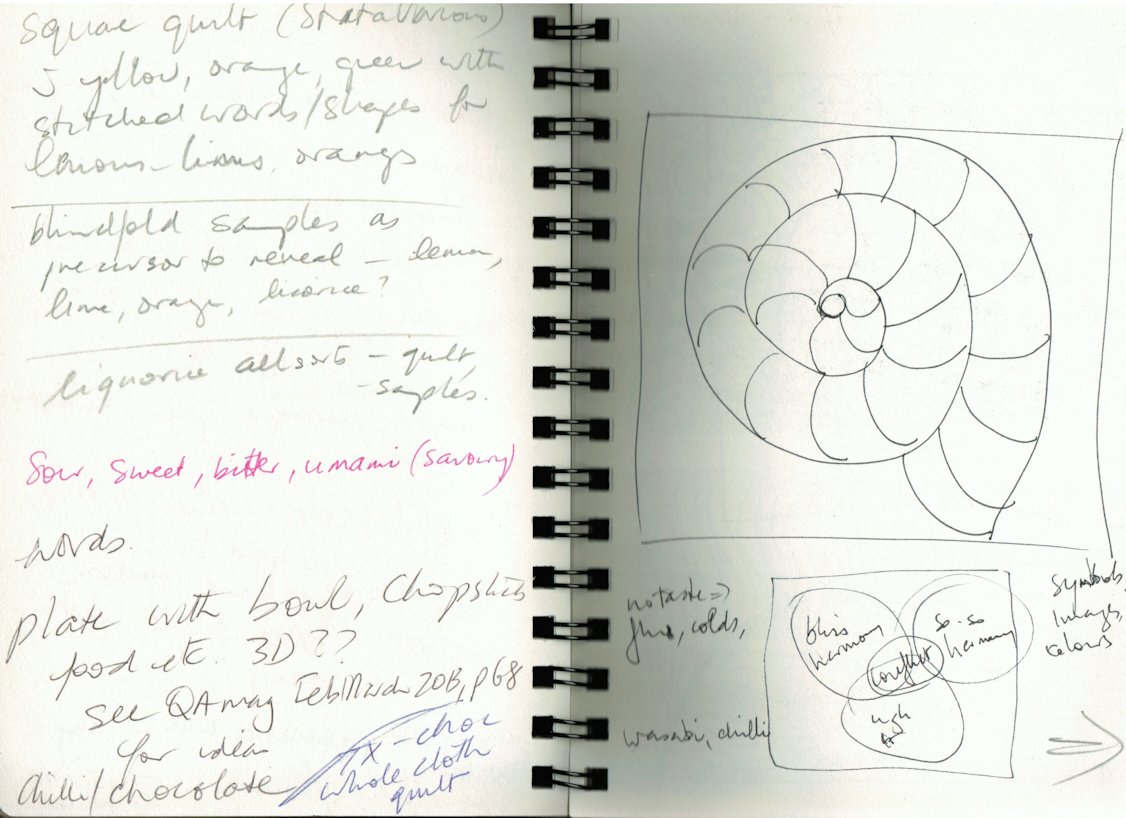 Squae quilt (Strata
5 yellow, orange, green with
stitched words/shapes for
lemons - limes, orangs
blindfold samples as
precursor to reveal - lemon,
lime, orange, licorice?
liquorice allsorts - quilt,
- samples.
Sour, sweet, bitter, umami (savoury)
words.
plate with bowl, chopsticks
food etc. 3D ??
see QA mag Feb/March 2013, p68
for ideas
chilli/chocolate
- choc
whole cloth
quilt
no taste =>
flu, colds,
wasabi, chilli
bliss
harmony
so-so
harmony
conflict
ugh
symbols,
images,
colours